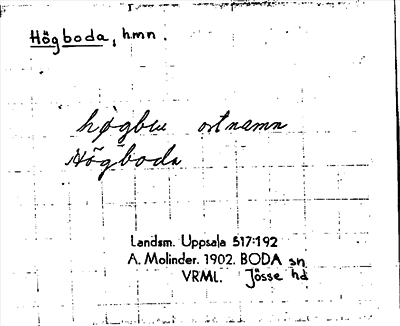 Högboda, hmn.
høgbɯ ortnamn
Högboda
Landsm. Uppsala 517:192
A. Molinder. 1902. BODA sn
VRML. Jösse hd